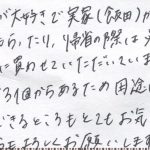 が大好きで実家(飯田)か
もらったり、帰省の際は
に買わせていただいていま
ろ1個からあるため用途に
できるところもとてもお気に
よろしくお願いします